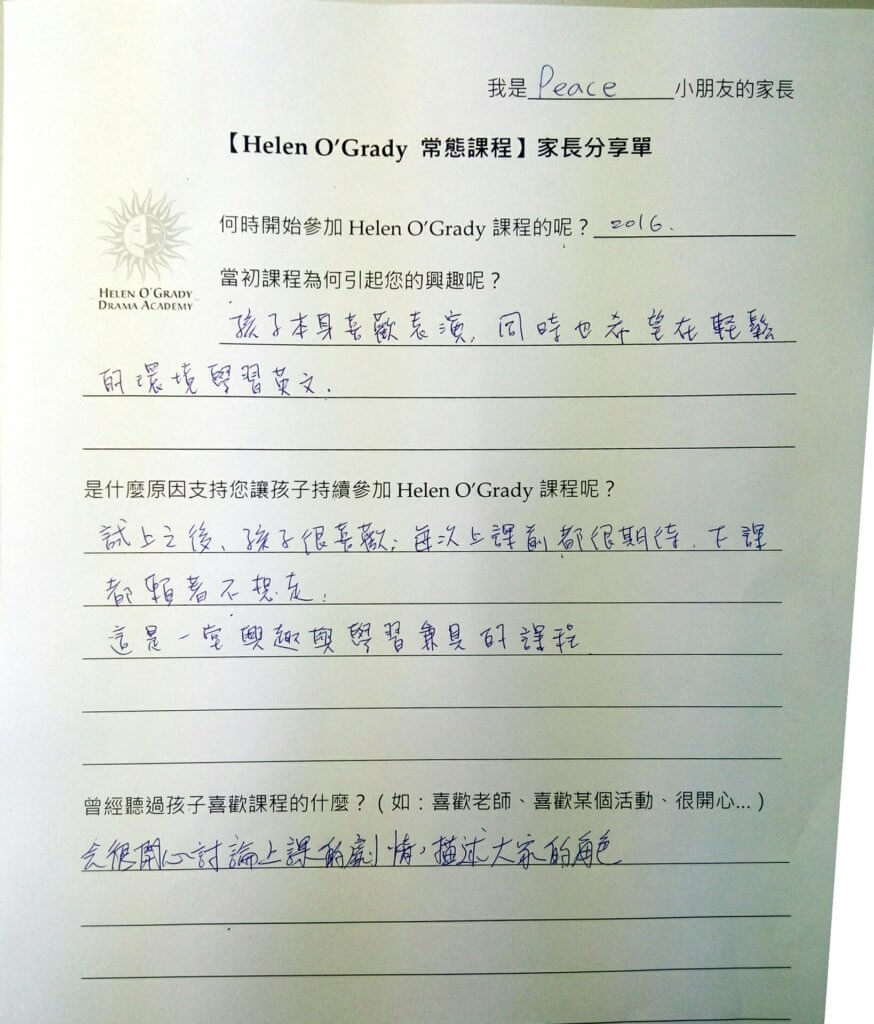 我是 Peace 小朋友的家長
【Helen O'Grady 常態課程】家長分享單
何時開始參加 Helen O'Grady 課程的呢？2016.
HELEN O'GRADY
DRAMA ACADEMY
當初課程為何引起您的興趣呢？
孩子本身喜歡表演,同時也希望在輕鬆
的環境學習英文.
是什麼原因支持您讓孩子持續參加 Helen O'Grady 課程呢？
試上之後、孩子很喜歡;每次上課前都很期待.下課
都賴著不想走.
這是一堂興趣與學習兼具的課程
曾經聽過孩子喜歡課程的什麼？（如：喜歡老師、喜歡某個活動、很開心...）
會很開心討論上課的劇情,描述大家的角色